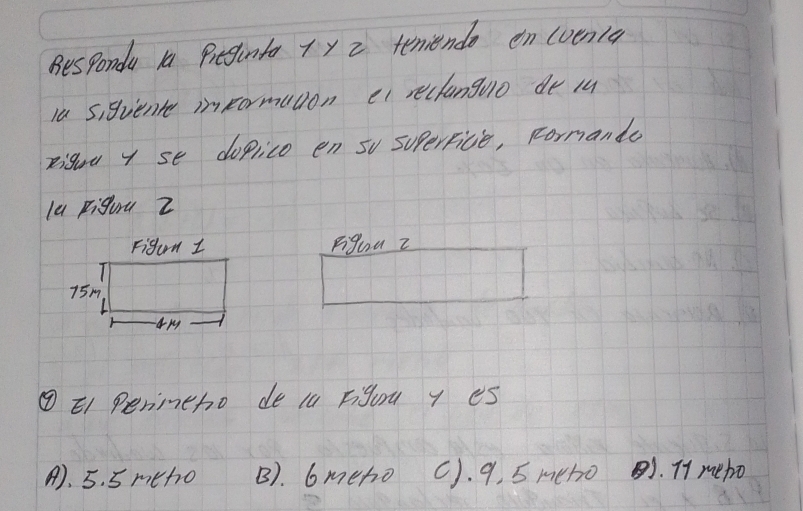 Responda la Pregunta 1 y 2 teniendo en cuenta
la siguiente informacion el rectangulo de la
Figura 1 se duplico en su superficie, Formando
la Figura 2
Figura 1 Figura 2
75m
4M
① El Perimetro de la Figura 1 es
A). 5.5 metro B). 6 metro C). 9,5 metro D). 11 metro